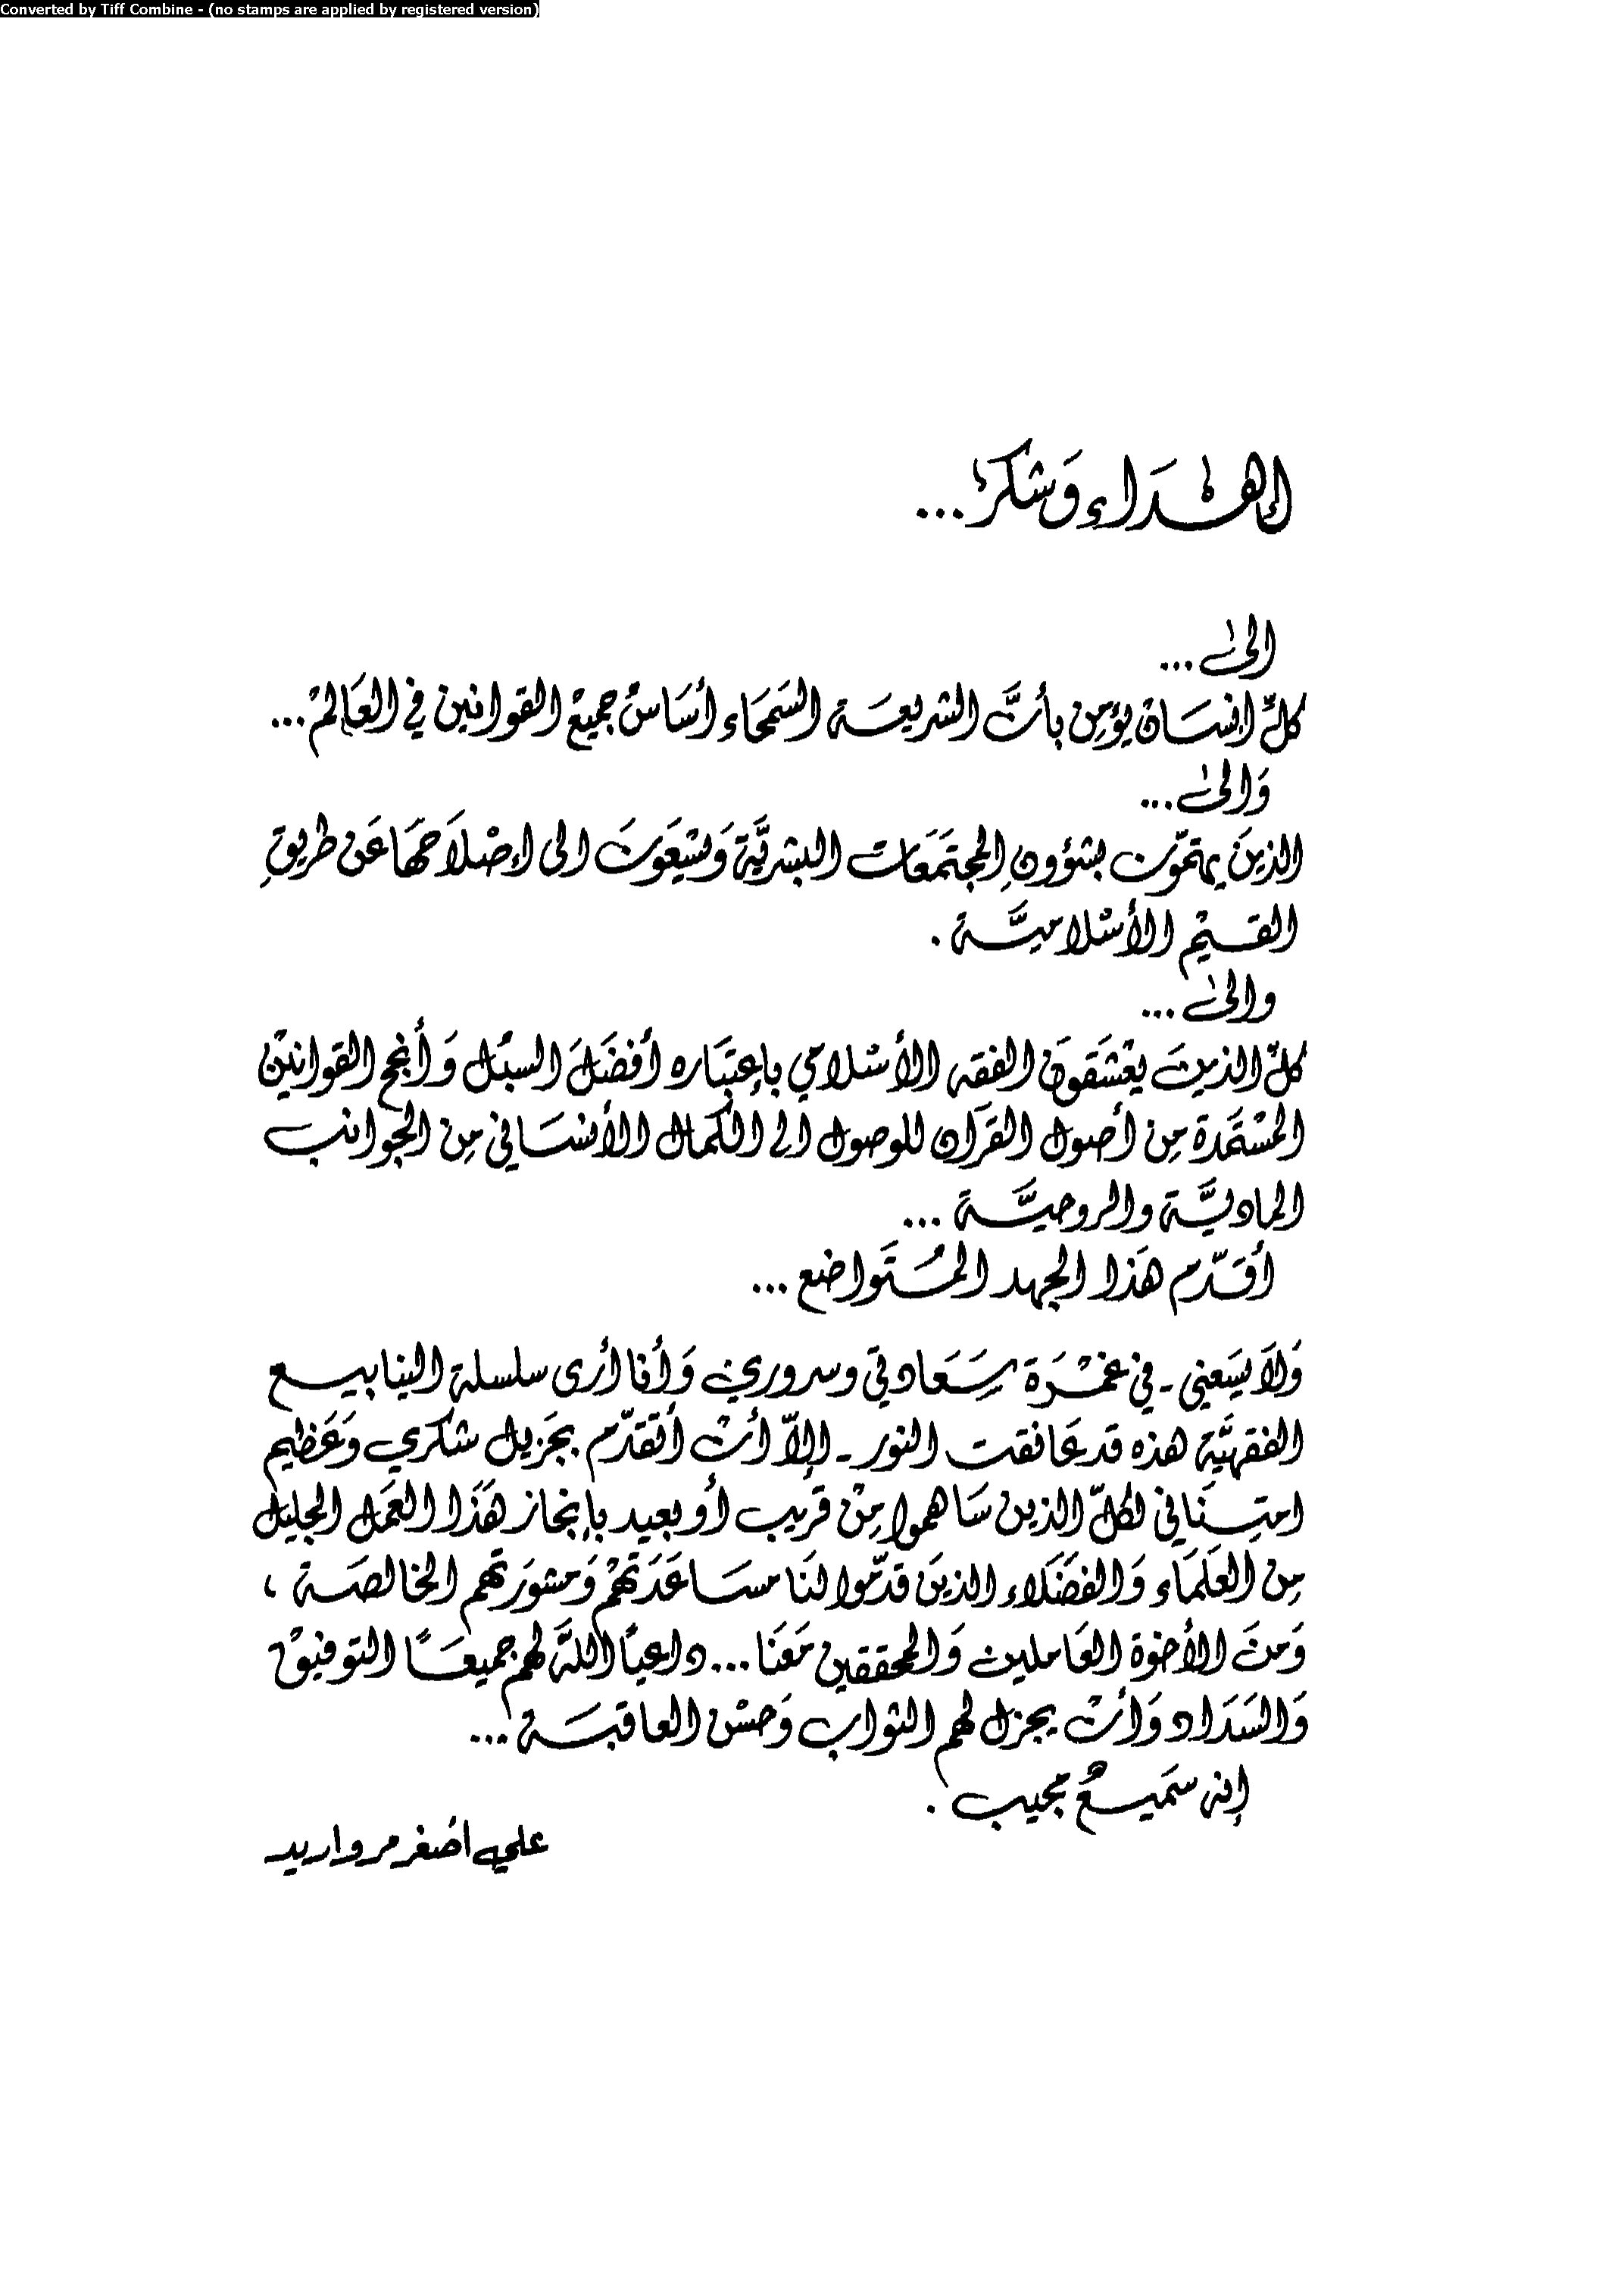 Converted by Tiff Combine - (no stamps are applied by registered version)
إهْدَاء وَشكر...
الىٰ...
كلِّ انسَان يؤمِن بأنَّ الشريعَة السَمحَاء أسَاسُ جميع القوانين في العَالم...
وَالىٰ...
الذينَ يهتمّون بشؤونِ المجتمَعَات البشريَّة وَيسْعَونَ الى إصْلاَحهَا عَن طريقِ
القيم الأسْلاميَّة .
والىٰ...
كلِّ الذينَ يعْشَقونَ الفقه الأسْلامي بإعتبَاره أفضَلَ السبُل وَأنجح القوانين
المسْتمَدة مِن أصول القرآن للوصول الى الكمال الأنسَاني مِن الجوانب
الماديَّة والروحيَّة ...
أقَدّم هَذا الجهد المتَواضع ...
وَلاَ يسَعني - في غمْرَة سَعَادتي وسروري وَأنا أرى سلسلة الينابيع
الفقهيَّة هذه قد عَانقت النور - إلاّ أنْ أتقدّم بجَزيل شكري وَعَظيم
امتِنَاني لكلّ الذين سَاهموا مِنْ قريب أو بعيد بإنجاز هَذَا العَمل الجليل
مِن العلَمَاء وَالفضَلاء الذينَ قدّموا لنَا مسَاعَدَتهُمْ وَمشوَرتهم الخالصَة ،
وَمنَ الأخوة العَاملين وَالمحققين مَعَنَا... داعياً اللهَ لهم جميعَاً التوفيق
وَالسَدَاد وَأنْ يجزل لهم الثواب وَحسْن العاقبَة ...
إنه سَميعٌ مجيب .
علي اصْغر مرواريد